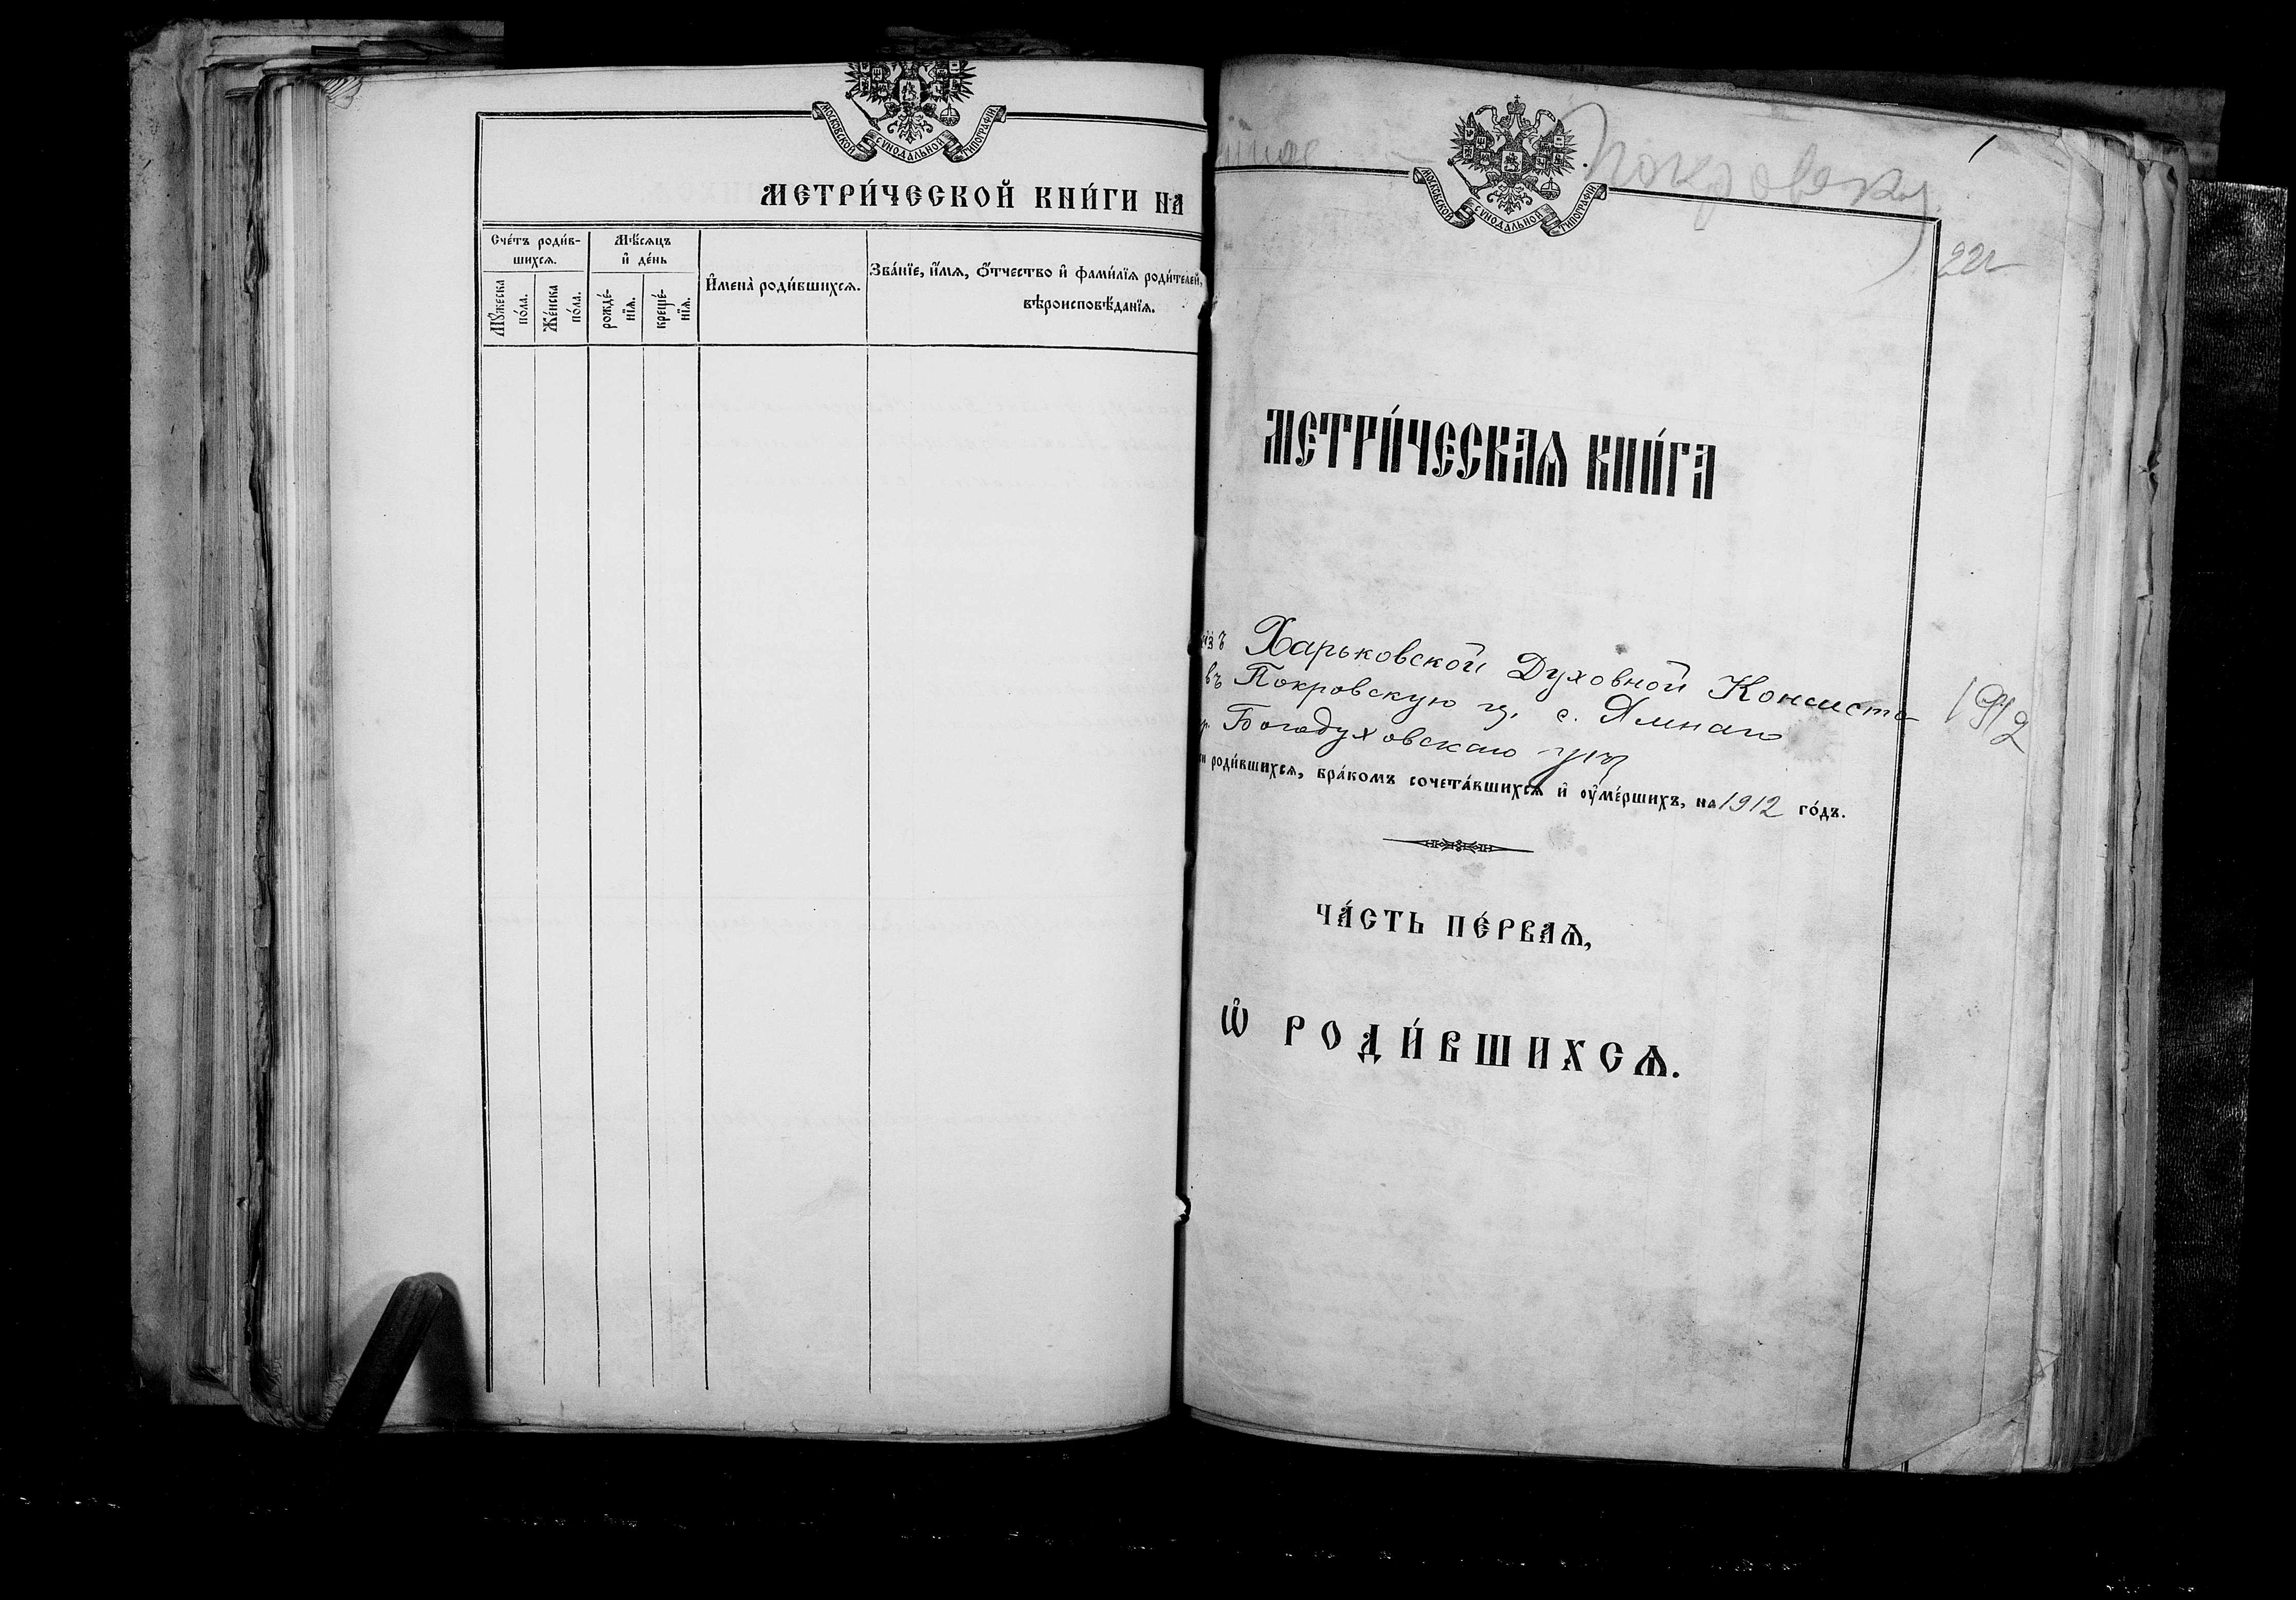 МОСКОВСКОЙ СУНОДАЛЬНОЙ ТИПОГРАФІИ
МЕТРИ́ЧЕСКОЙ КНИ́ГИ НА
Сче́тъ роди́в-
шихсѧ.
Мꙋ́жеска
по́ла.
Же́нска
по́ла.
Мѣ́сѧцъ
и҆ де́нь
рожде́-
нїѧ.
креще́-
нїѧ.
И҆мена̀ роди́вшихсѧ.
Зва́нїе, и҆́мѧ, ѻ҆́тчество и҆ фами́лїѧ роди́телей,
вѣроисповѣ́данїѧ.
Покровск
1
МОСКОВСКОЙ СУНОДАЛЬНОЙ ТИПОГРАФІИ
221
МЕТРИ́ЧЕСКАѦ КНИ́ГА
изъ Харьковской Духовной Консисто
въ Покровскую ц. с. Ямнаго
Богодуховскаго у
роди́вшихсѧ, бра́комъ сочета́вшихсѧ и҆ ᲂу҆ме́ршихъ, на 1912 го́дъ.
1912
ЧА́СТЬ ПЕ́РВАѦ,
Ѡ҆ РОДИ́ВШИХСѦ.